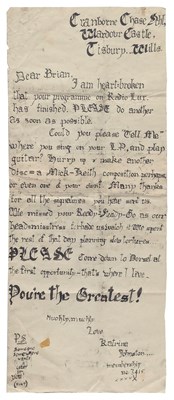 Cranborne Chase Schl,
Wardour Castle,
Tisbury.. Wilts.
Dear Brian,
I am heartbroken
that your programme on Radio Lux.
has finished. PLEASE do another
as soon as possible.
Could you please Tell Me
where you sing on your L.P, and play
guitar? Hurry up & make another
disc = a Mick-Keith composition perhaps
or even one of your own! Many thanks
for all the signatures you have sent us.
We missed your Ready-Steady-Go as our
headmistress forbade us to watch it We spent
the rest of that day planning
PLEASE come down to Dorset at
the first opportunity - that's where I live.
You're the Greatest!
Love
Katrina
Johnston...
membership
no 3416
P.S.